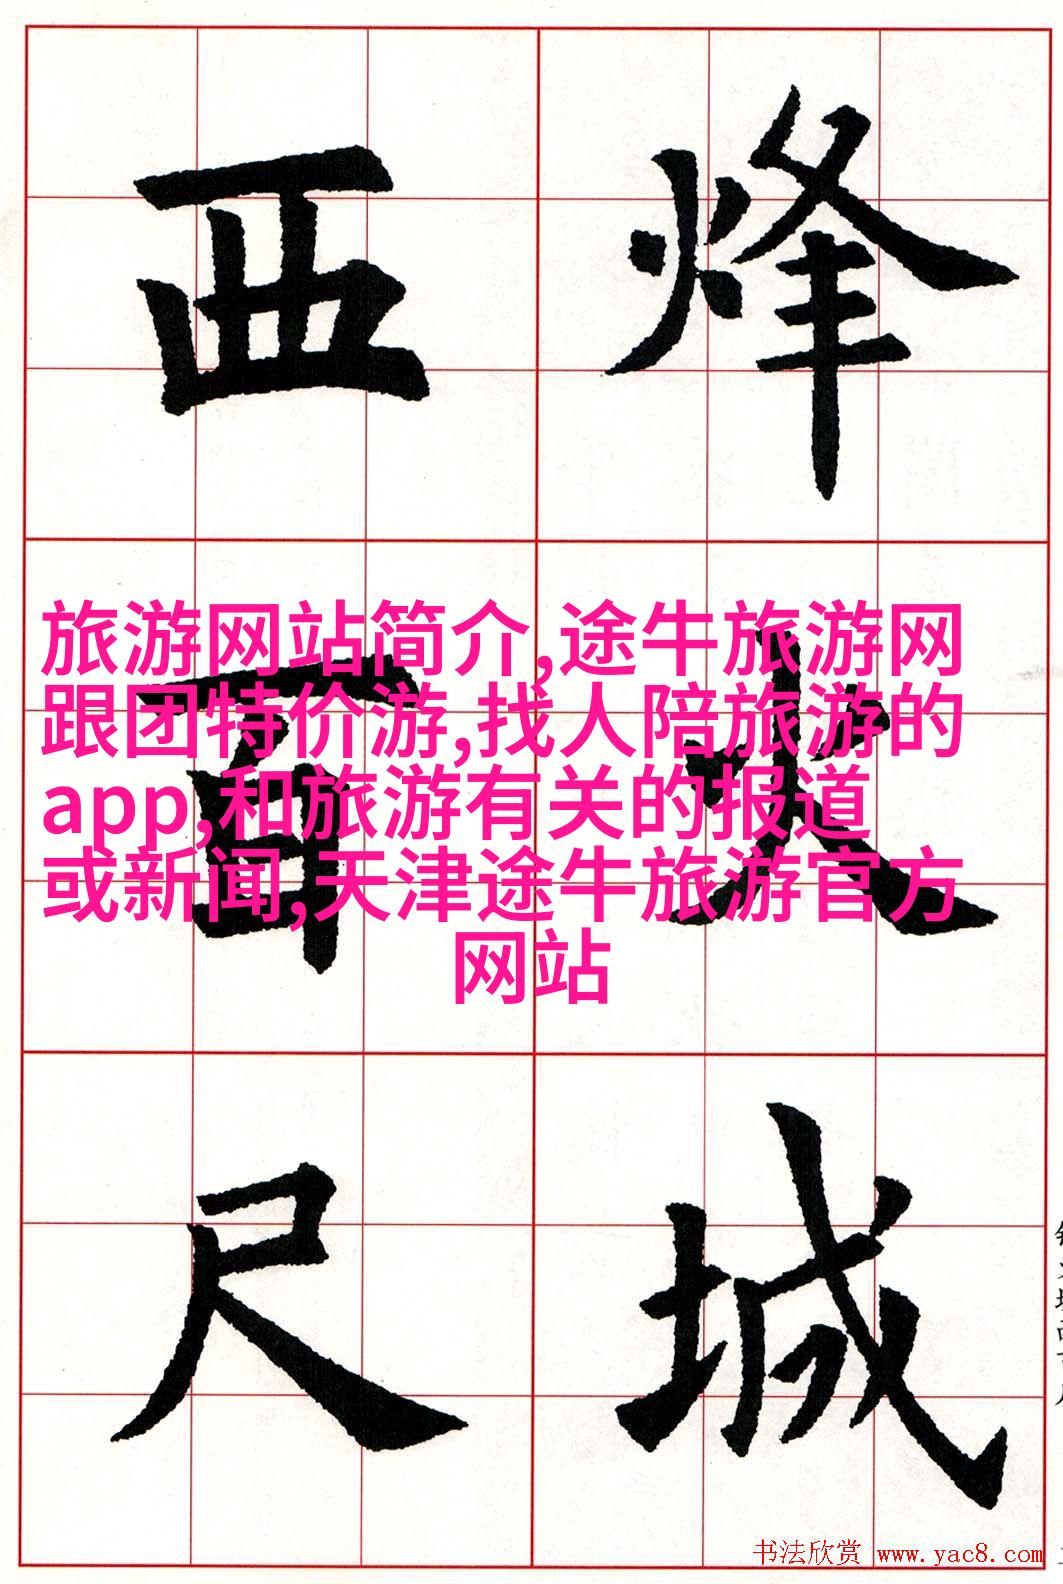 烽火城
西百尺
旅游网站简介,途牛旅游网
跟团特价游,找人陪旅游的
app,和旅游有关的报道
或新闻,天津途牛旅游官方
网站
书法欣赏 www.yac8.com